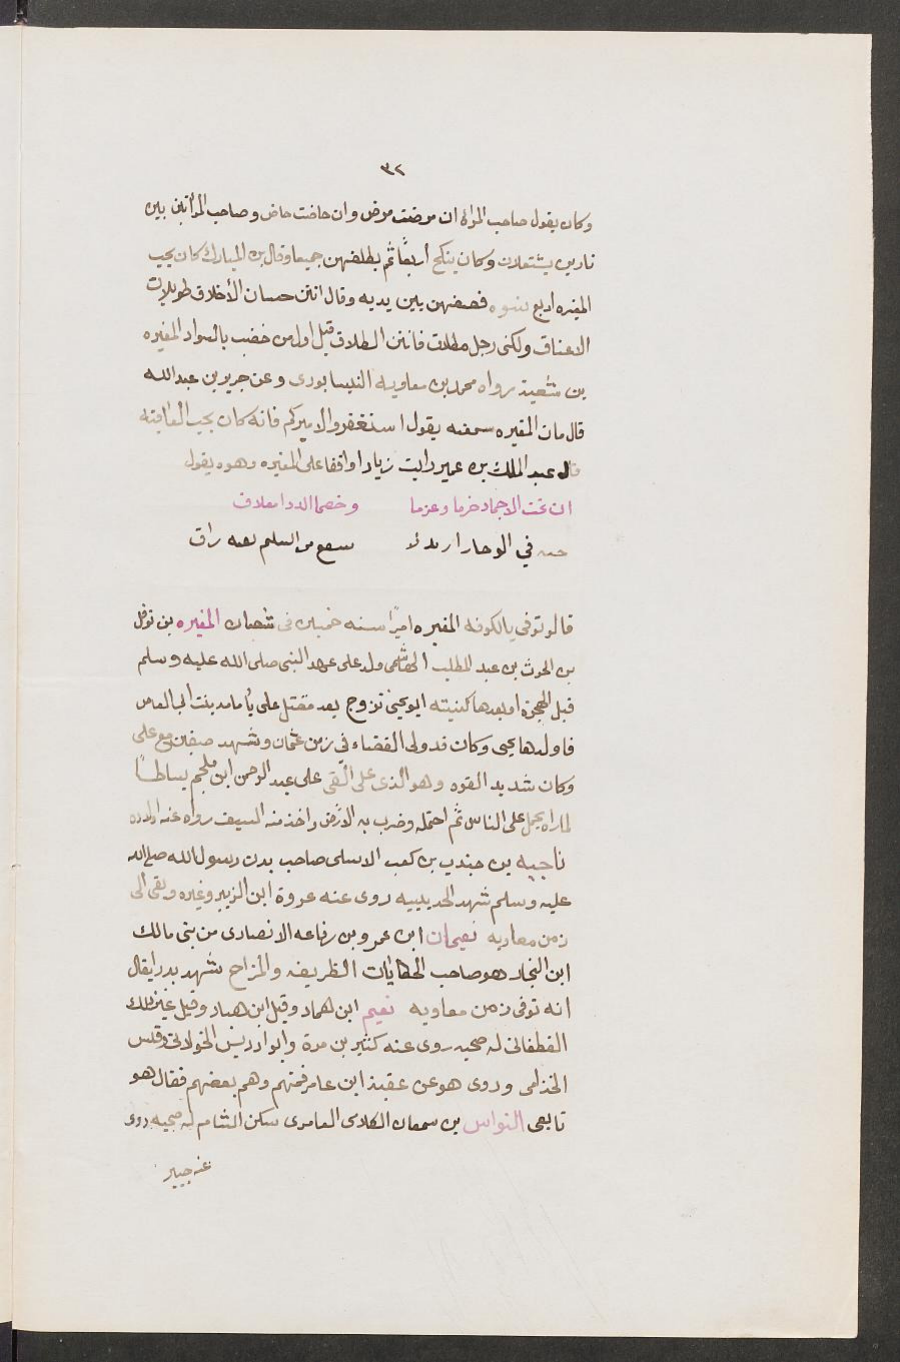 ٣٢
وكان يقول صاحب المراة ان مرضت مرض وان حاضت حاض وصاحب المراتين بين
نارين يشتعلان وكان ينكح أربعًا ثم يطلقهن جميعا وقال بن المبارك كان يجب
المغيره اربع نسوه فصفهن بين يديه وقال انتن حسان الأخلاق طويلات
الاعناق ولكنى رجل مطلاق فانتن الطلاق قيل اول من خضب بالسواد المغيره
بن شعبة رواه محمد بن معاويه النيسابورى وعن جرير بن عبد الله
قال مات المغيره سمعته يقول استغفروا لاميركم فانه كان يحب العافيته
قال عبد الملك بن عمير رايت زيادا واقفا على المغيره وهوه يقول
ان تحت الاحجار خرما وعزما وخصما الدد امعلاق
حيه في الوجار اربد لا ينفع من السليم نفثه راق
قالو توفى بالكوفه المغيره اميرًا سنه خمسين فى شعبان المغيره بن نوفل
بن الحرث بن عبد المطلب الهاشمى ولد على عهد النبى صلى الله عليه وسلم
قبل الهجرة او بعدها كنيته ابو يحيى تزوج بعد مقتل على بأمامه بنت ابى العاص
فاولدها يحيى وكان قد ولى القضاء في زمن عثمان وشهد صفين مع على
وكان شديد القوه وهو الذى القى على عبد الرحمن ابن ملجم بساطًا
لما راه يحمل على الناس ثم احتمله وضرب به الارض واخذ منه السيف رواه عنه اولاده
ناجيه بن جندب بن كعب الاسلمى صاحب بدن رسول الله صلى الله
عليه وسلم شهد الحديبيه روى عنه عروة ابن الزبير وغيره وبقى الى
زمن معاويه نعيمان ابن عمرو بن رفاعه الانصارى من بنى مالك
ابن النجار هو صاحب الحكايات الظريفه والمزاح شهد بدرا يقال
انه توفى زمن معاويه نعيم ابن همار وقيل ابن هبار وقيل غير ذلك
الغطفانى له صحبه روى عنه كثير بن مرة وابو ادريس الخولانى وقيس
الجذامى وروى هو عن عقبة ابن عامر فمنهم وهم بعضهم فقال هو
تابعى النواس بن سمعان الكلابى العامرى سكن الشام له صحبه روى
عنه جبير